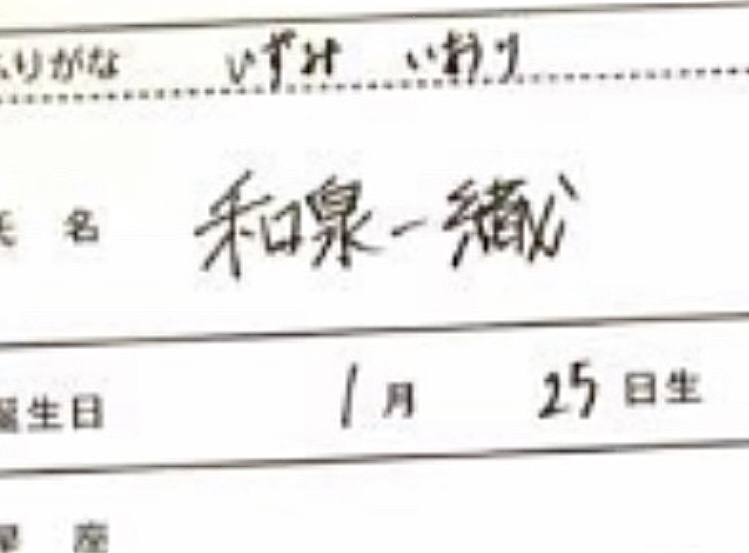 ふりがな いずみ いおり
氏名 和泉一織
誕生日 1月 25日生
星座